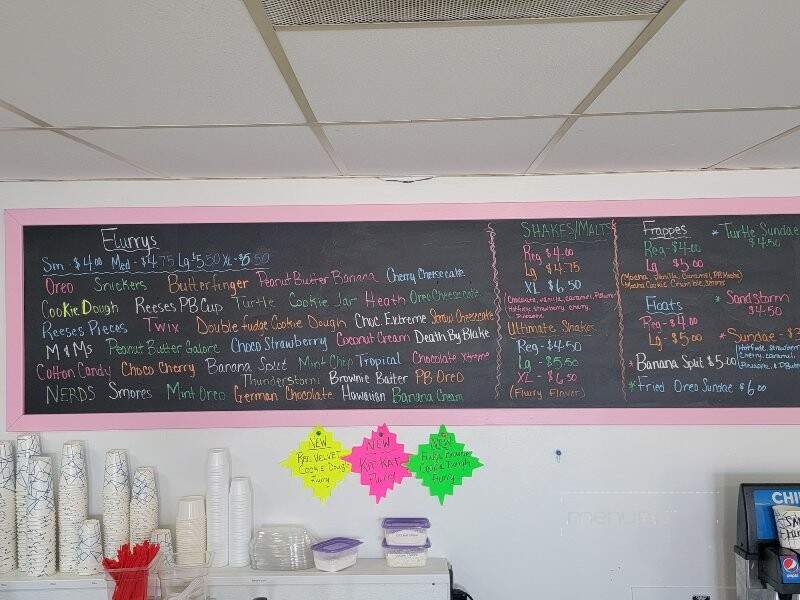 Flurrys
Sm - $4.00 Med - $4.75 Lg $5.50 XL - $
Oreo Snickers Butterfinger Peanut Butter Banana Cherry Cheesecake
Cookie Dough Reeses PB Cup Turtle Cookie Jar Heath Oreo Cheesecake
Reeses Pieces Twix Double Fudge Cookie Dough Choc Extreme Straw Cheesecake
M&Ms Peanut Butter Galore Choco Strawberry Coconut Cream Death By Blake
Cotton Candy Choco Cherry Banana Split Mint Chip Tropical Chocolate Xtreme
Thunderstorm Brownie Batter PB Oreo
NERDS Smores Mint Oreo German Chocolate Hawaiian Banana Cream
SHAKES/MALTS
Reg $4.00
Lg $4.75
XL $6.50
Chocolate, vanilla, caramel,
Hotfudge, strawberry, cherry,
Pineapple
Ultimate Shakes
Reg - $4.50
Lg - $5.50
XL - $6.50
(Flurry Flavor)
Frappes
Reg - $4.00
Lg $5.00
Mocha, Vanilla, Caramel, PB Mocha
Mocha Cookie Crumble, Smores
Floats
Reg - $4.00
Lg - $5.00
*Banana Split $5.00
*Fried Oreo Sundae $6.00
*Turtle Sundae
$4.50
*Sandstorm
$4.50
*Sundae - $3
Hotfudge, Strawberry
Cherry, caramel,
NEW
Red Velvet
Cookie Dough
Flurry
NEW
Kit Kat
Flurry
Flurry
CHI
pepsi